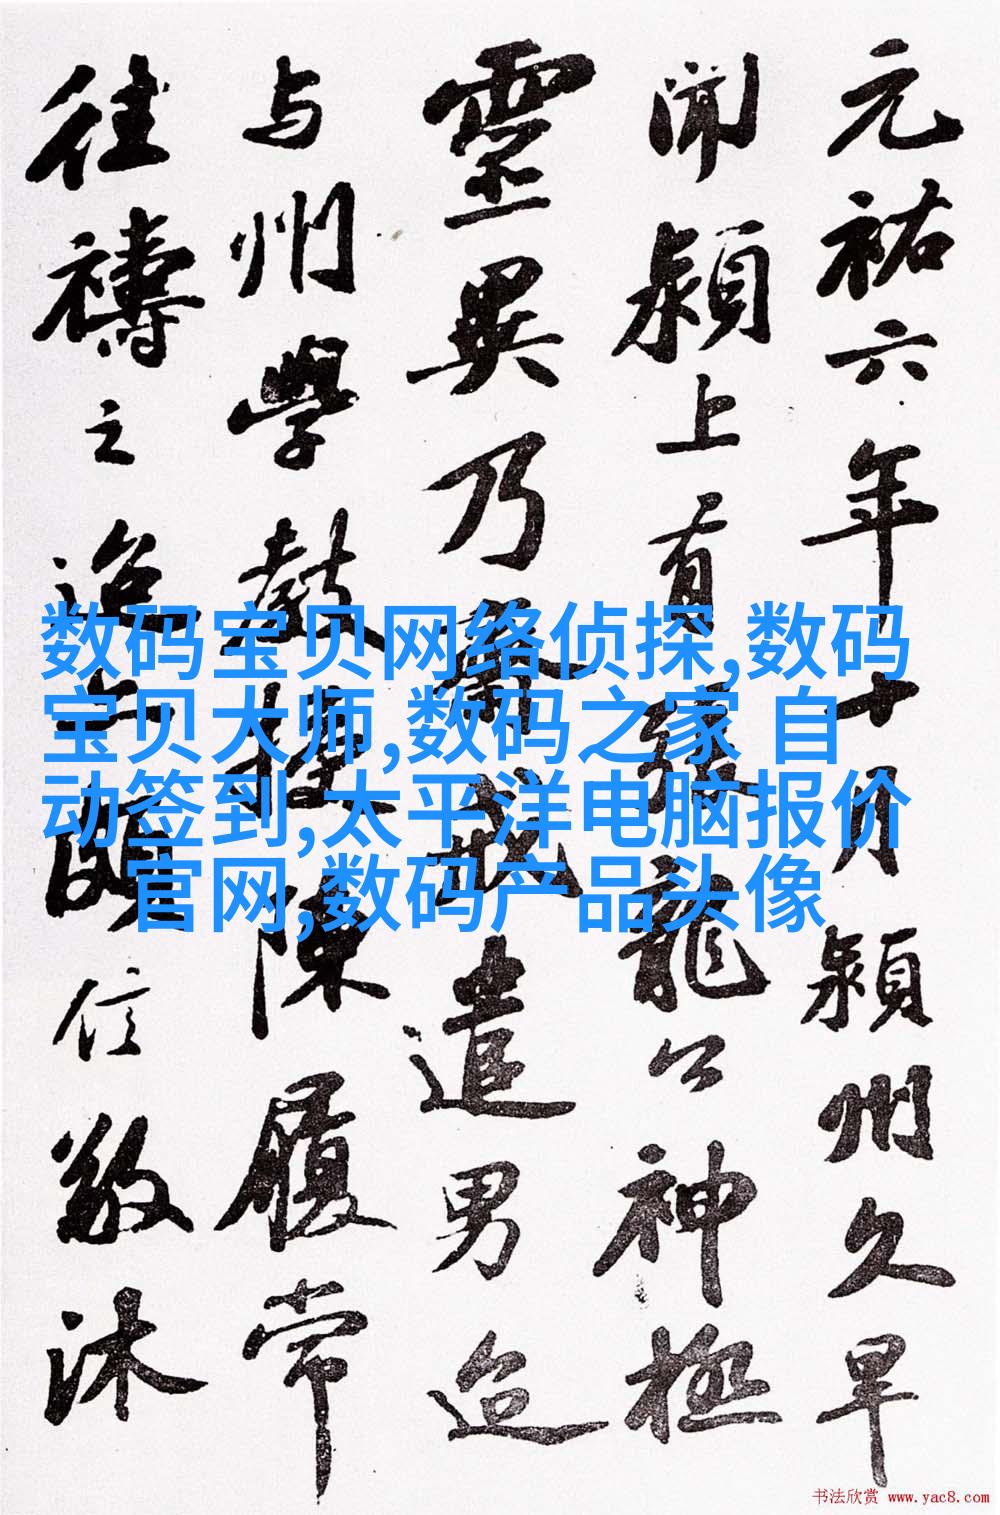 元祐六年十月颍州久旱
闻颍上有张龙公神极
灵異乃斋戒遣男迨
与州學教授陳履常
往禱之迨亦頗信敬沐
数码宝贝网络侦探,数码
宝贝大师,数码之家 自
动签到,太平洋电脑报价
官网,数码产品头像
书法欣赏 www.yac8.com